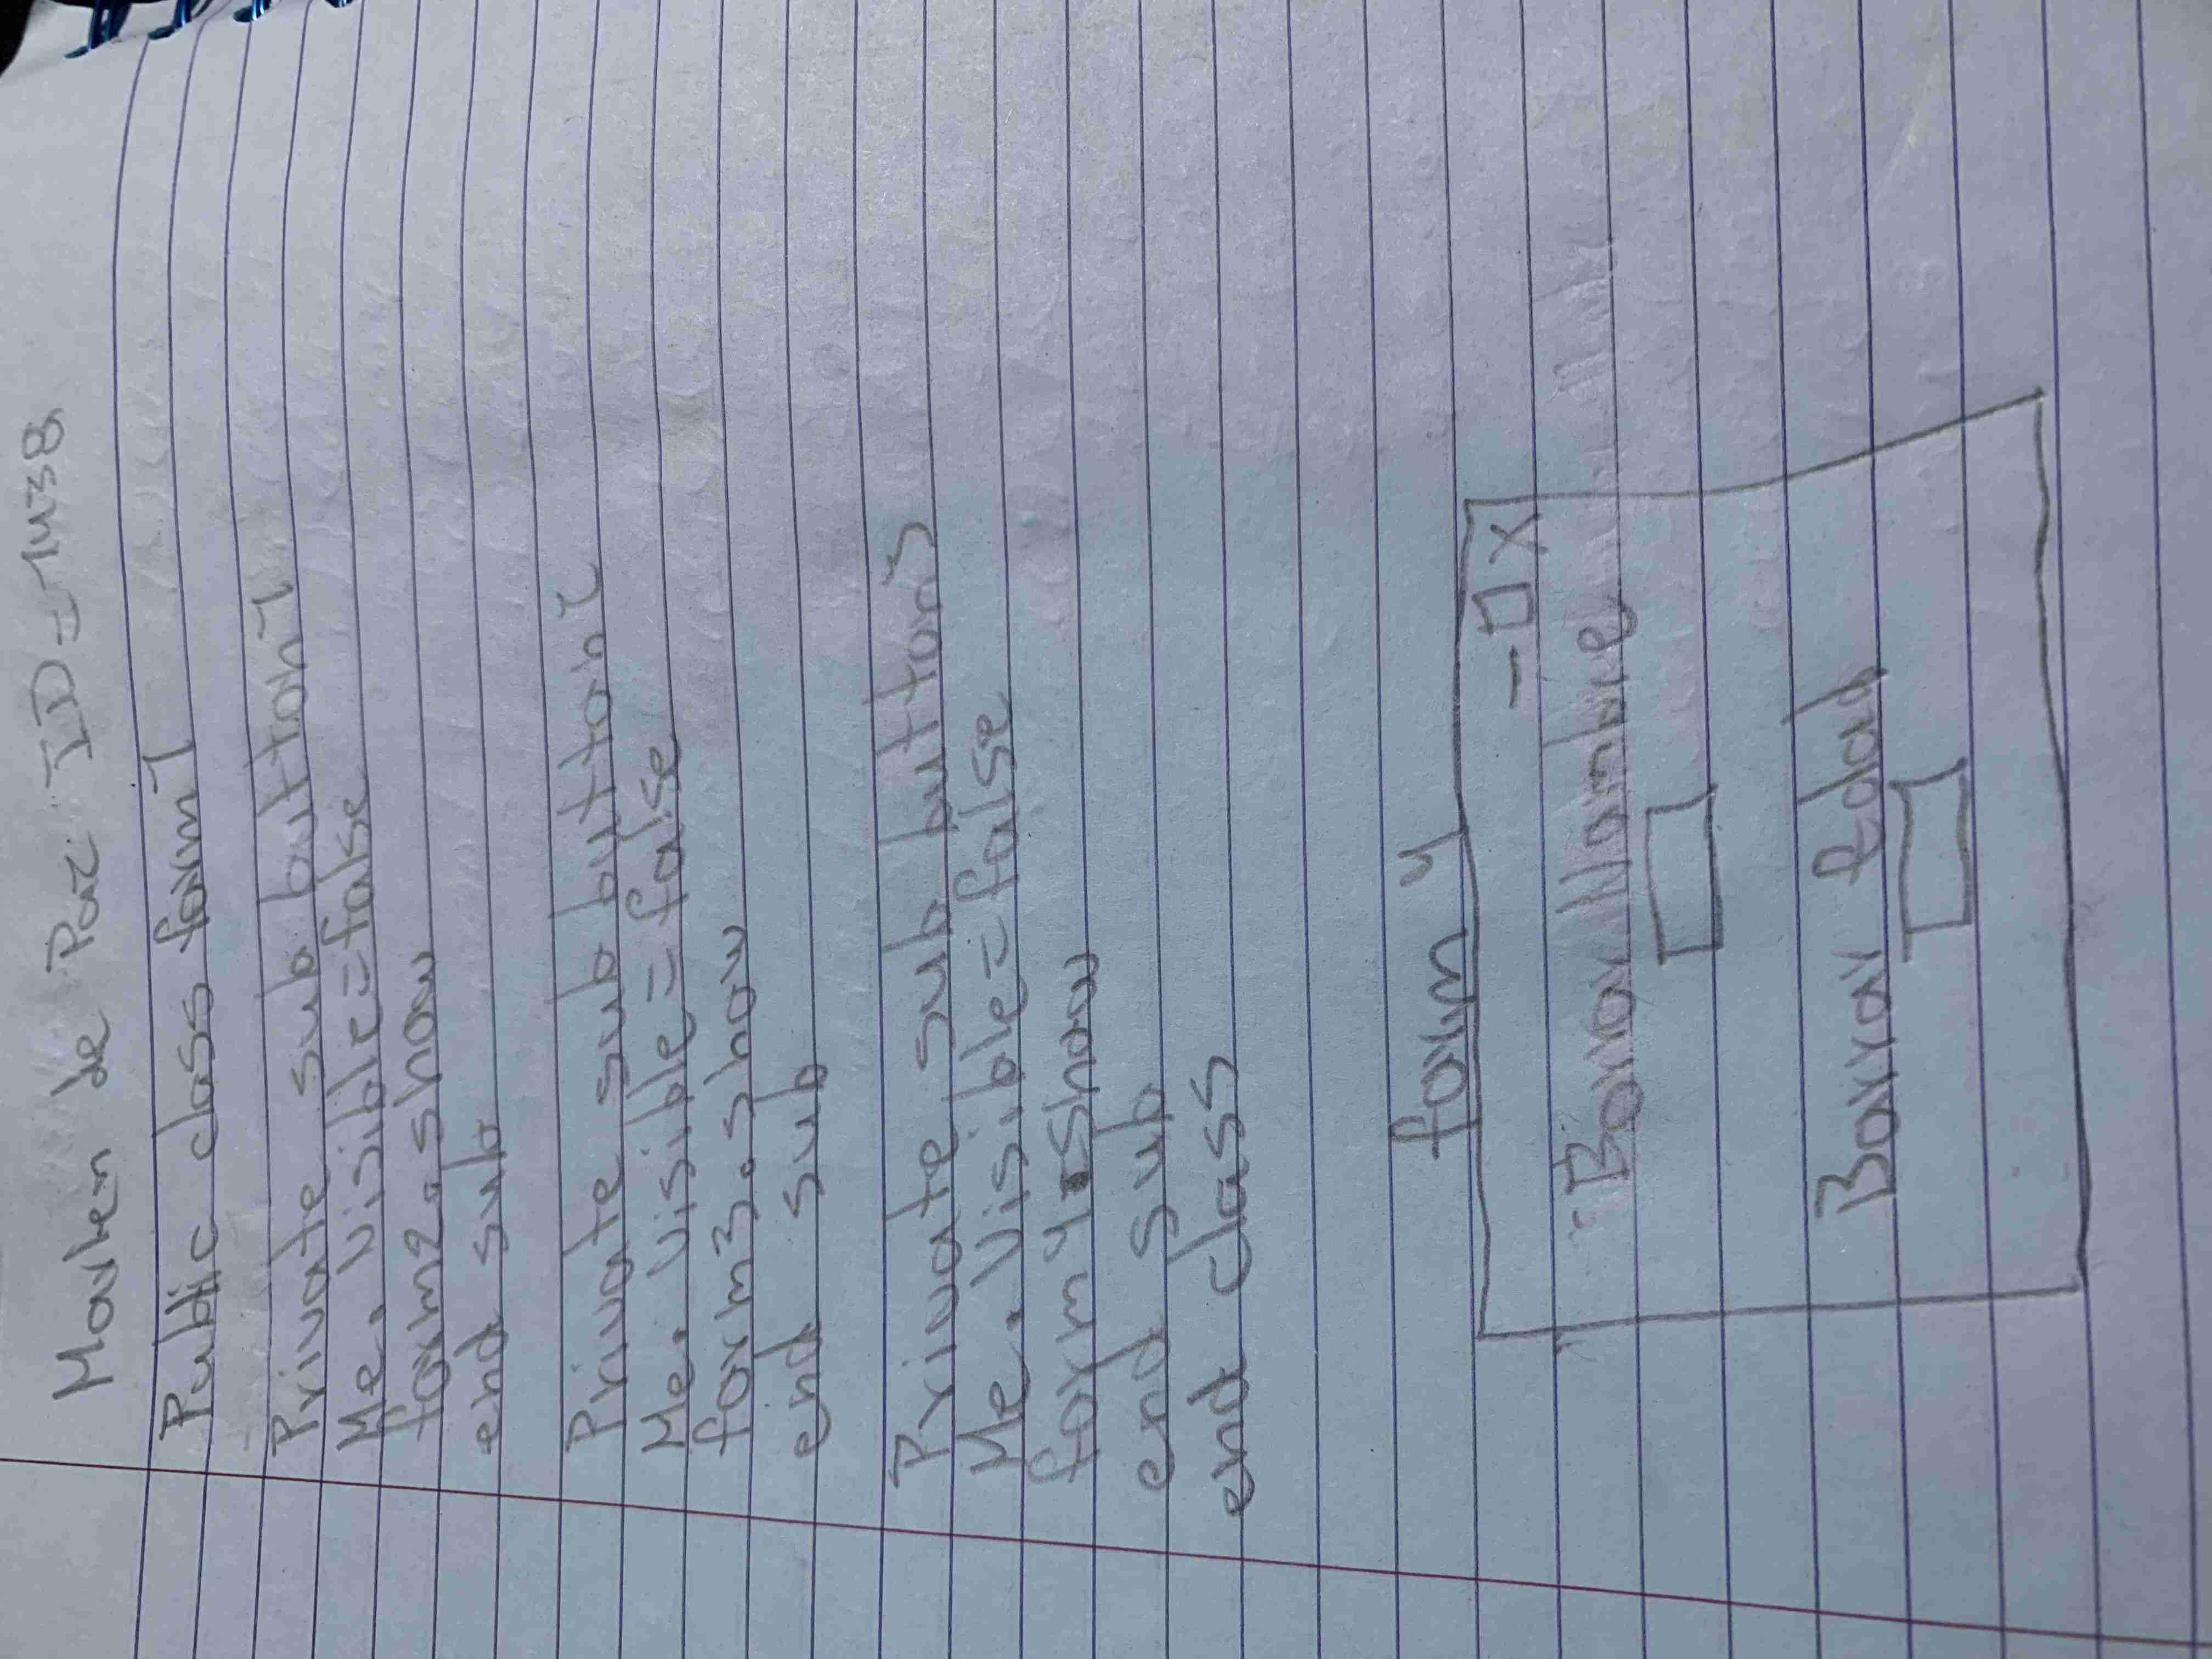 Marlen de Paz ID=1438
Public class form1
Private sub button1
Me.visible=false
form2.show
end sub
Private sub button2
Me.visible=false
form3.show
end sub
Private sub button3
Me.visible=false
form4.show
end sub
end class
form 4
- □ X
Borrar Nombre
Borrar Edad